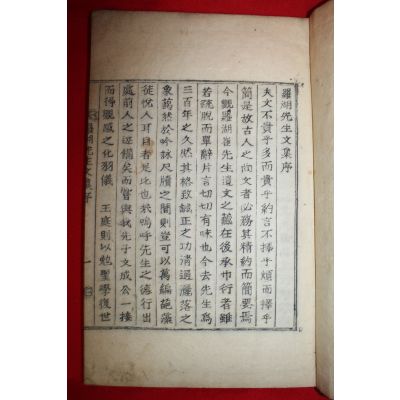 羅湖先生文集序
夫文不貴乎多而貴乎約言不擇乎煩而擇乎
簡是故古人之尚文者必務其精約而簡要焉
今觀羅湖崔先生遺文之蘊在後承巾衍者雖
若疏脫而單辭片言切切有味也今去先生爲
三百年之久然其格致誠正之功清通灑落之
象藹然於吟詠尺牘之間則豈可以萬編葩藻
徒悅人耳目者是比也哉嗚呼先生之德行出
處前人之述備矣而嘗與我先子文成公一接
而得觀感之化羽儀 王庭則以勉聖學復世
羅湖先生文集序 一